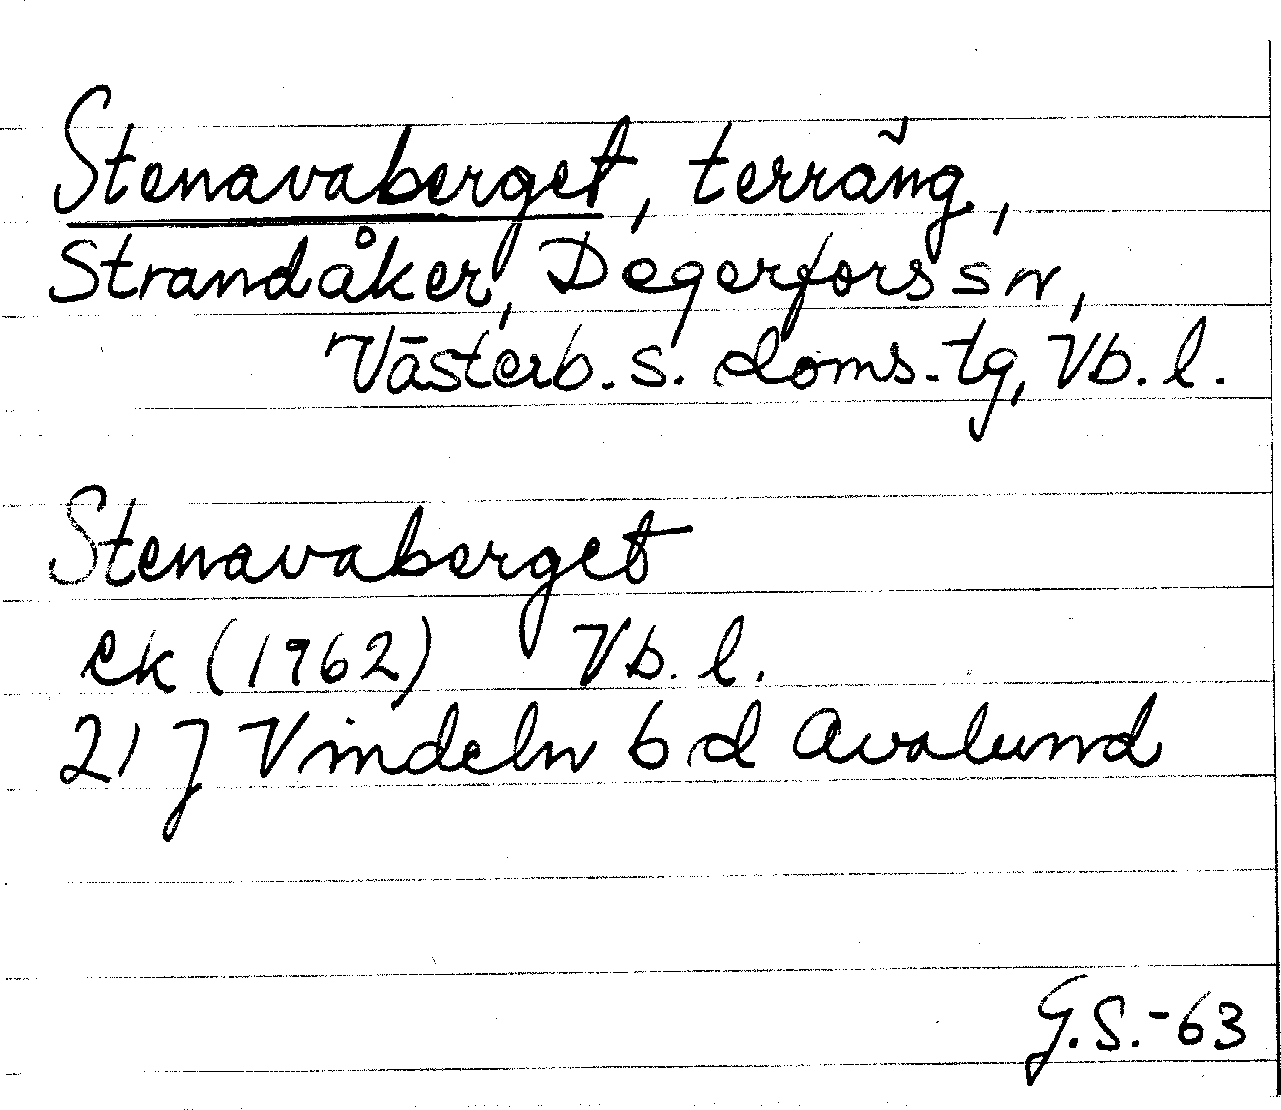 Stenavaberget, terräng,
Strandåker, Degerfors sn,
Västerb. s. doms. tg, Vb. l.
Stenavaberget
ek (1962) Vb. l.
21 J Vindeln 6 d Avalund
G.S.-63